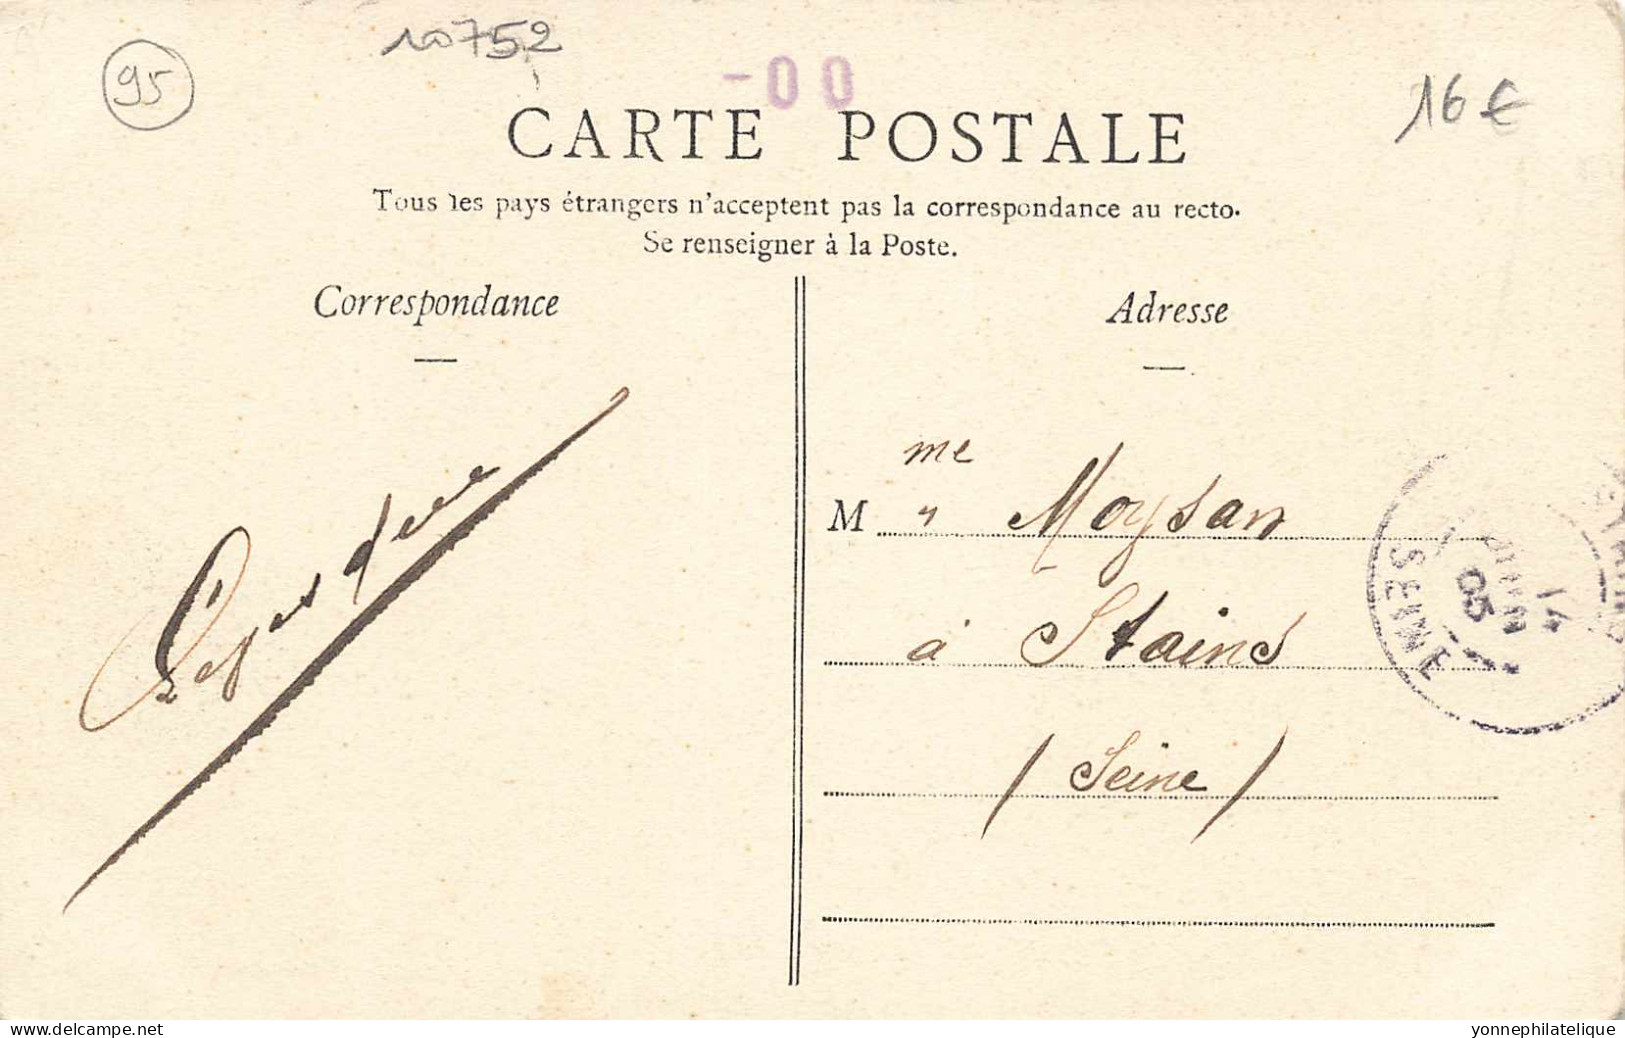 10752
95
-00
16 €
CARTE POSTALE
Tous les pays étrangers n'acceptent pas la correspondance au recto.
Se renseigner à la Poste.
Correspondance
Adresse
me
M " Moysan
à Stains
(Seine)
SEINE
14
JUIN
05
delcampe.net
yonnephilatelique